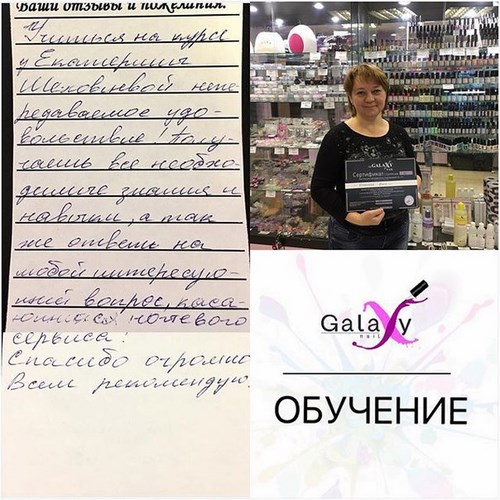 Ваши отзывы и пожелания:
Учиться на курсе
у Екатерины
Шеховцевой непе-
редаваемое удо-
вольствие! Полу-
чаешь все необхо-
димые знания и
навыки, а так
же ответы на
любой интересую-
щий вопрос, каса-
ющийся ногтевого
сервиса!
Спасибо огромно
Всем рекомендую.
GALAXY
Сертификат
GalaXy
nail
ОБУЧЕНИЕ